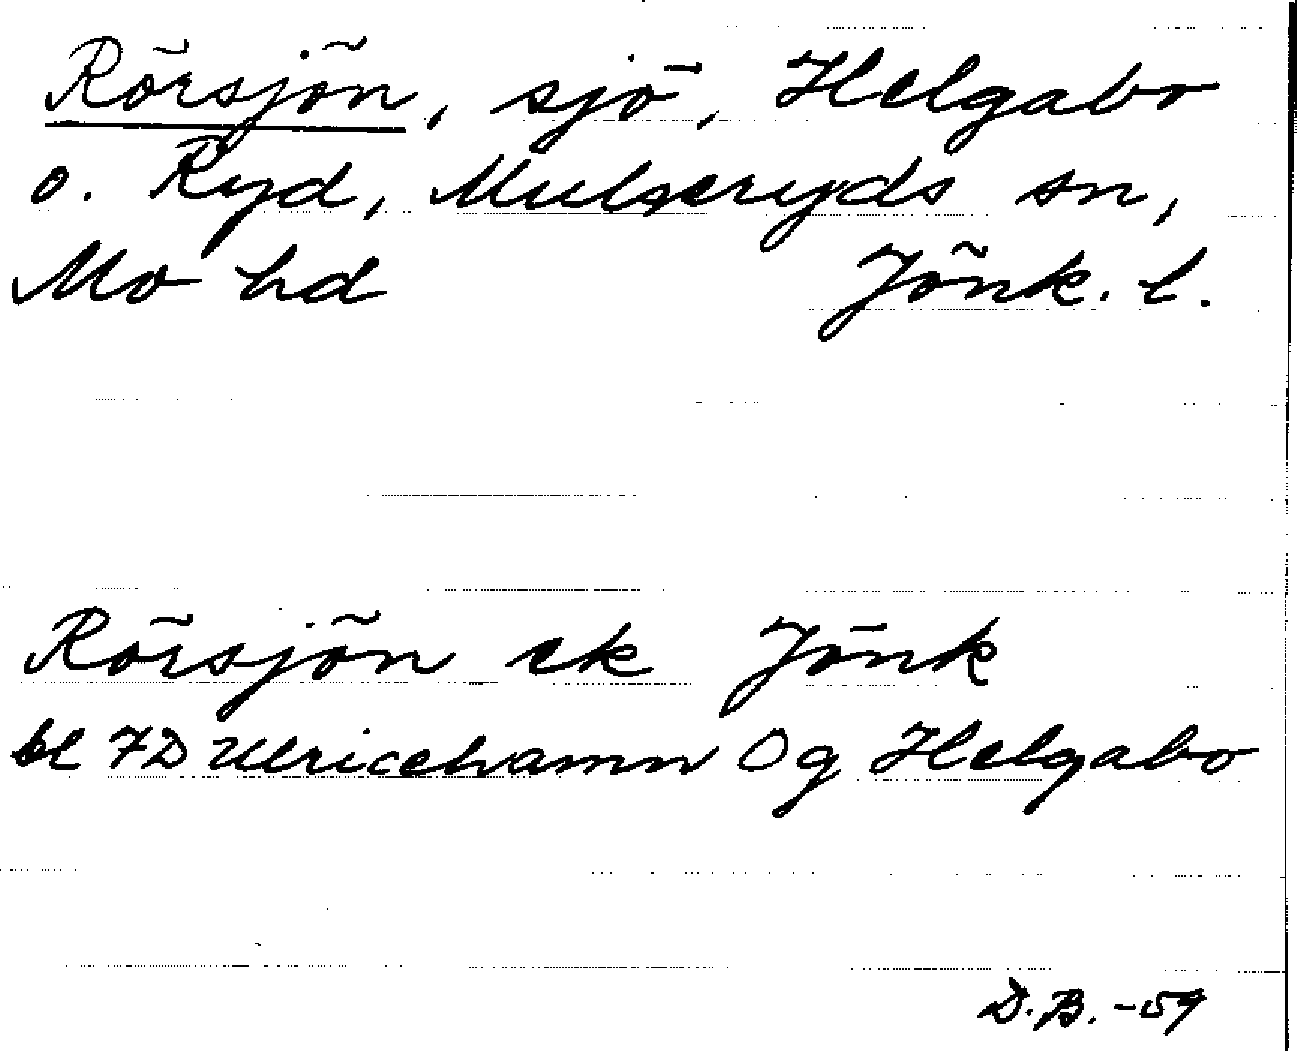 Rörsjön, sjö, Helgabo
o. Ryd, Mulseryds sn,
Mo hd Jönk. l.
Rörsjön ek Jönk
bl 7D Ulricehamn Og Helgabo
D.B. -59